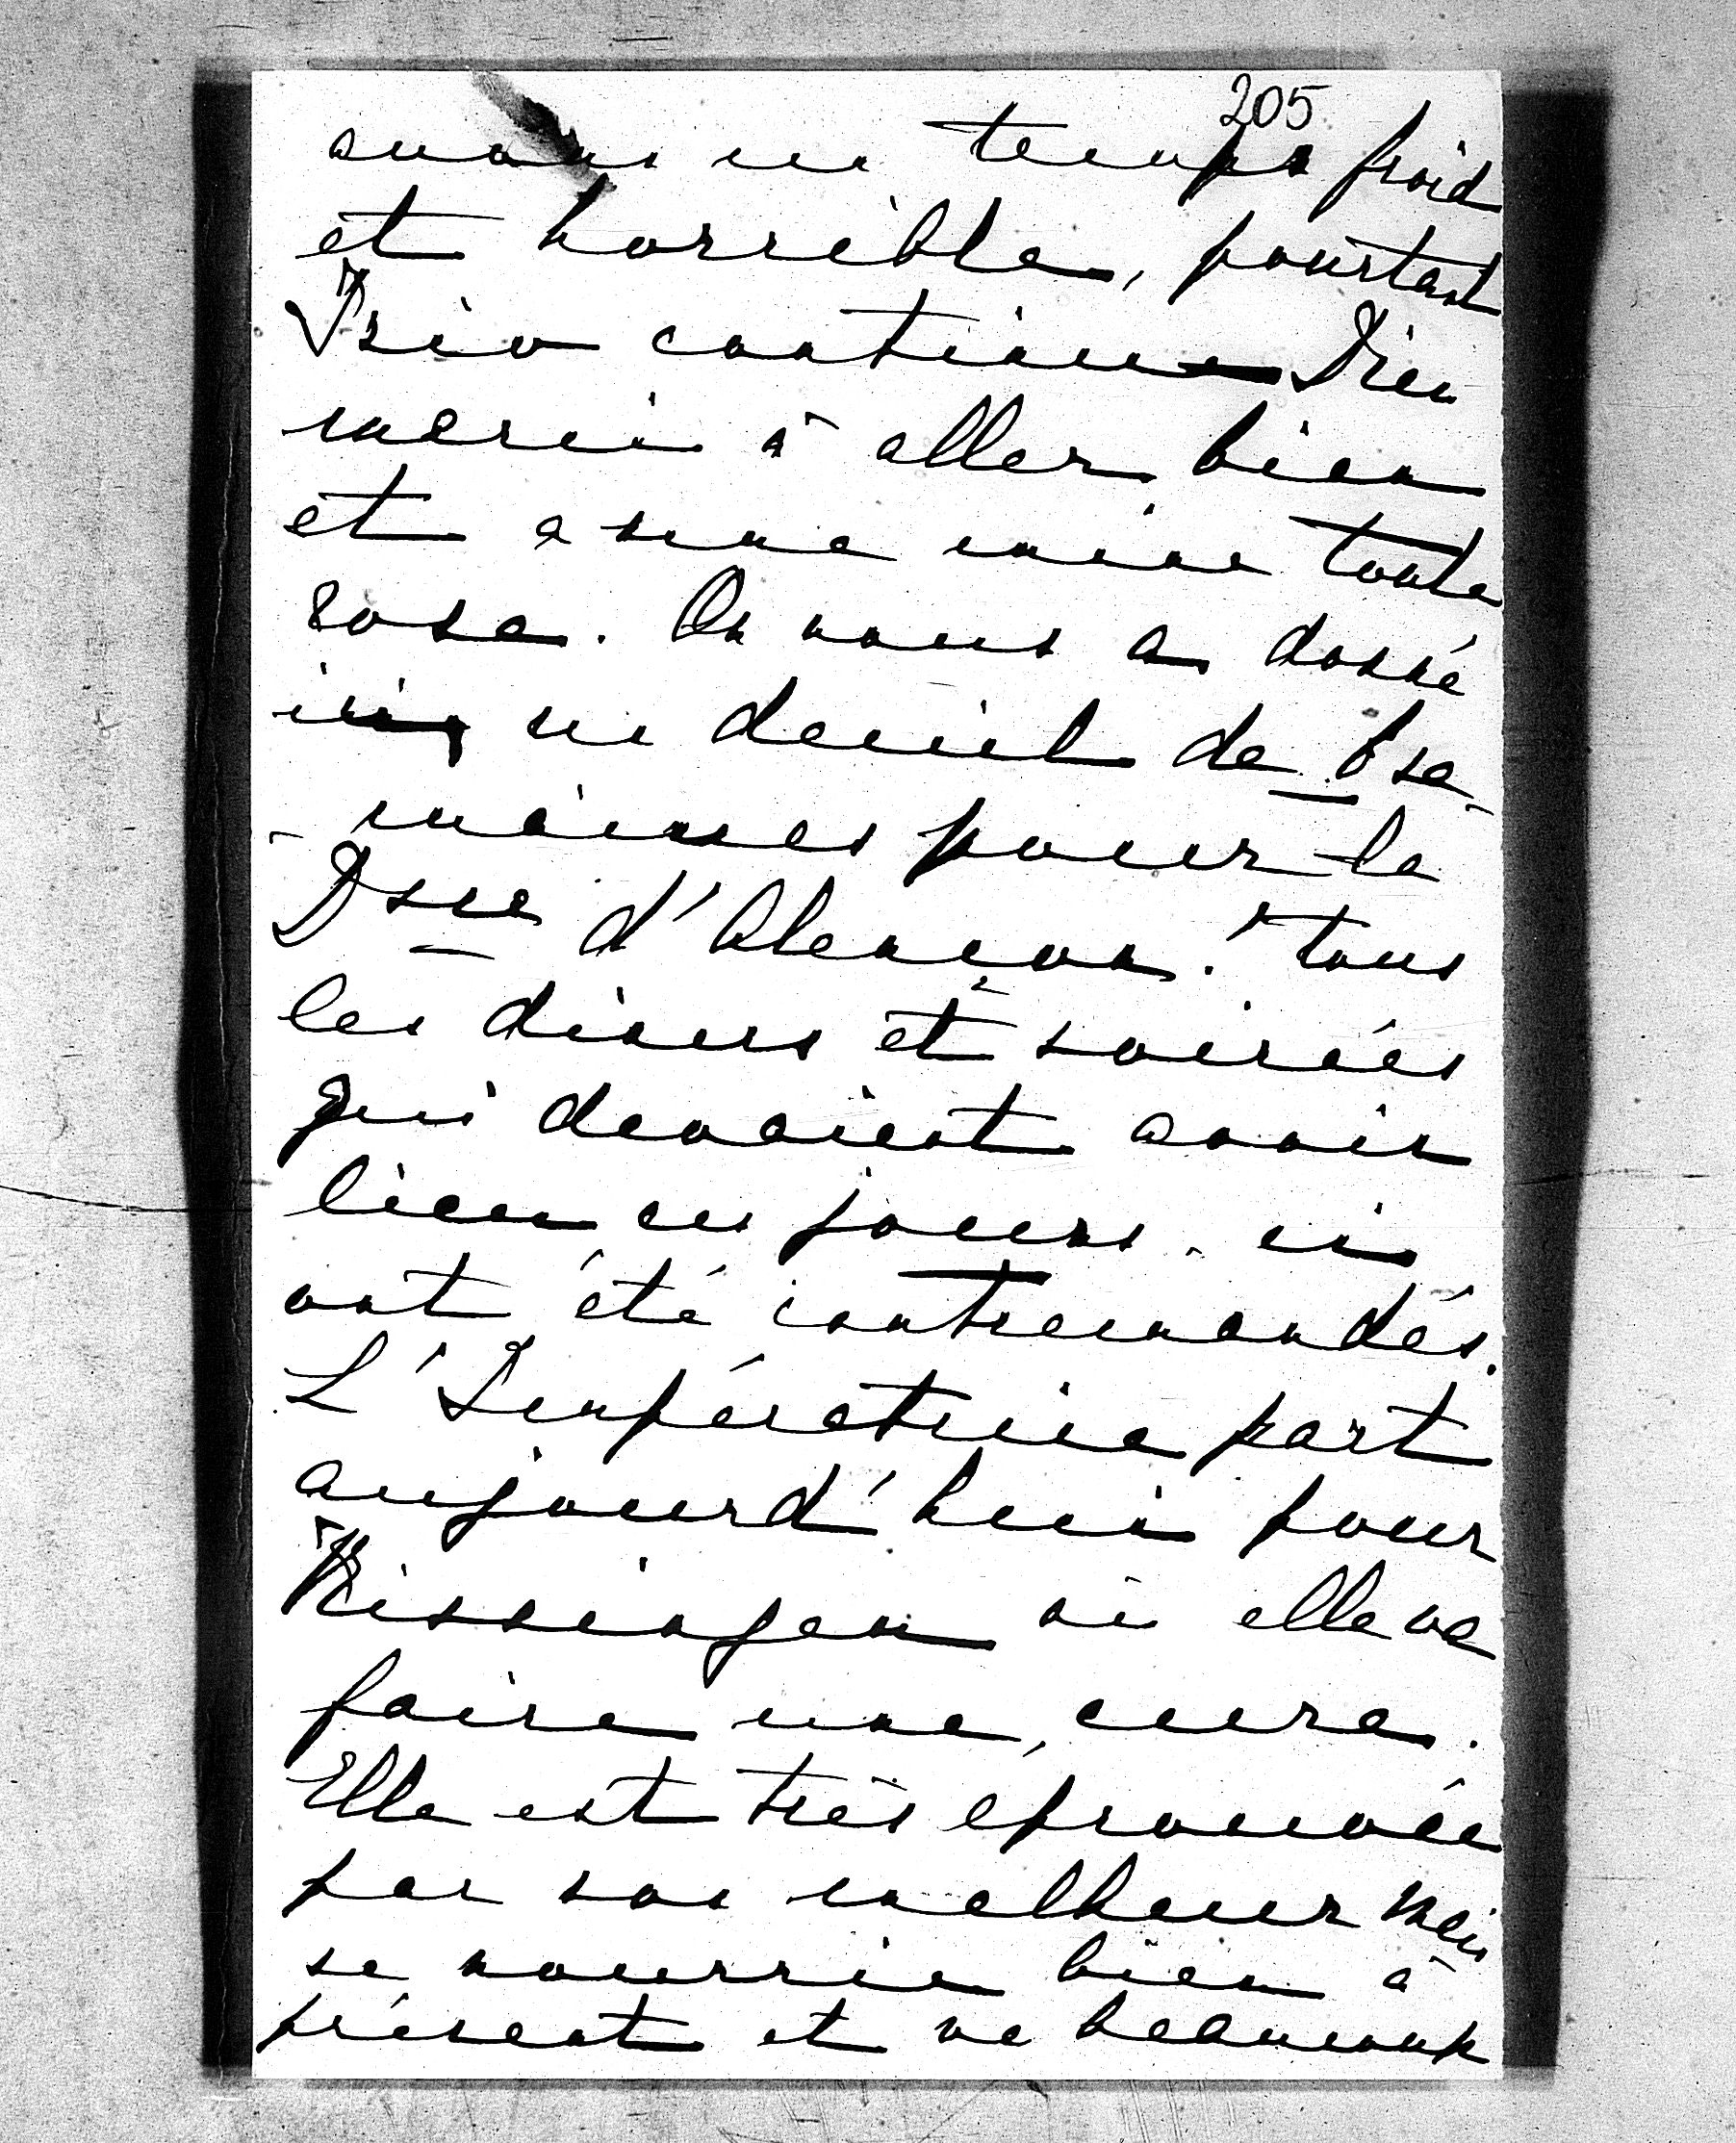 205
avons un temps froid
et horrible, pourtant
Irio continue Dieu
merci à aller bien
et a une mine toute
rose. On nous a donné
ici un deuil de 6 se-
-maines pour la
Dsse d'Alençon! tous
les diners et soirées
qui devaient avoir
lieu ces jours-ci
ont été contremandés.
L'Impératrice part
aujourd'hui pour
Kissingen où elle va
faire une cure.
Elle est très éprouvée
par son malheur mais
se nourrie bien à
présent et va beaucoup